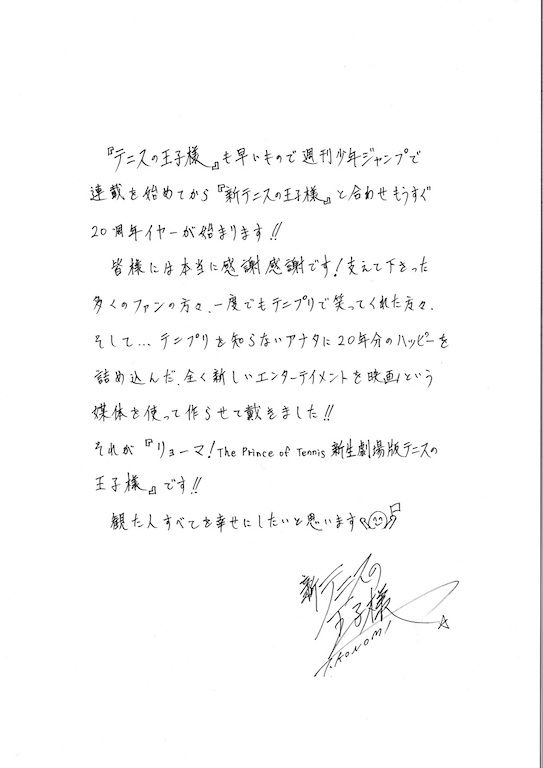 『テニスの王子様』も早いもので週刊少年ジャンプで
連載を始めてから『新テニスの王子様』と合わせもうすぐ
20周年イヤーが始まります!!
皆様には本当に感謝感謝です!支えて下さった
多くのファンの方々、一度でもテニプリで笑ってくれた方々、
そして…テニプリを知らないアナタに20年分のハッピーを
詰め込んだ、全く新しいエンターテイメントを映画という
媒体を使って作らせて戴きました!!
それが『リョーマ!The Prince of Tennis 新生劇場版テニスの
王子様』です!!
観た人すべてを幸せにしたいと思います
新テニスの
王子様
T.KONOMI